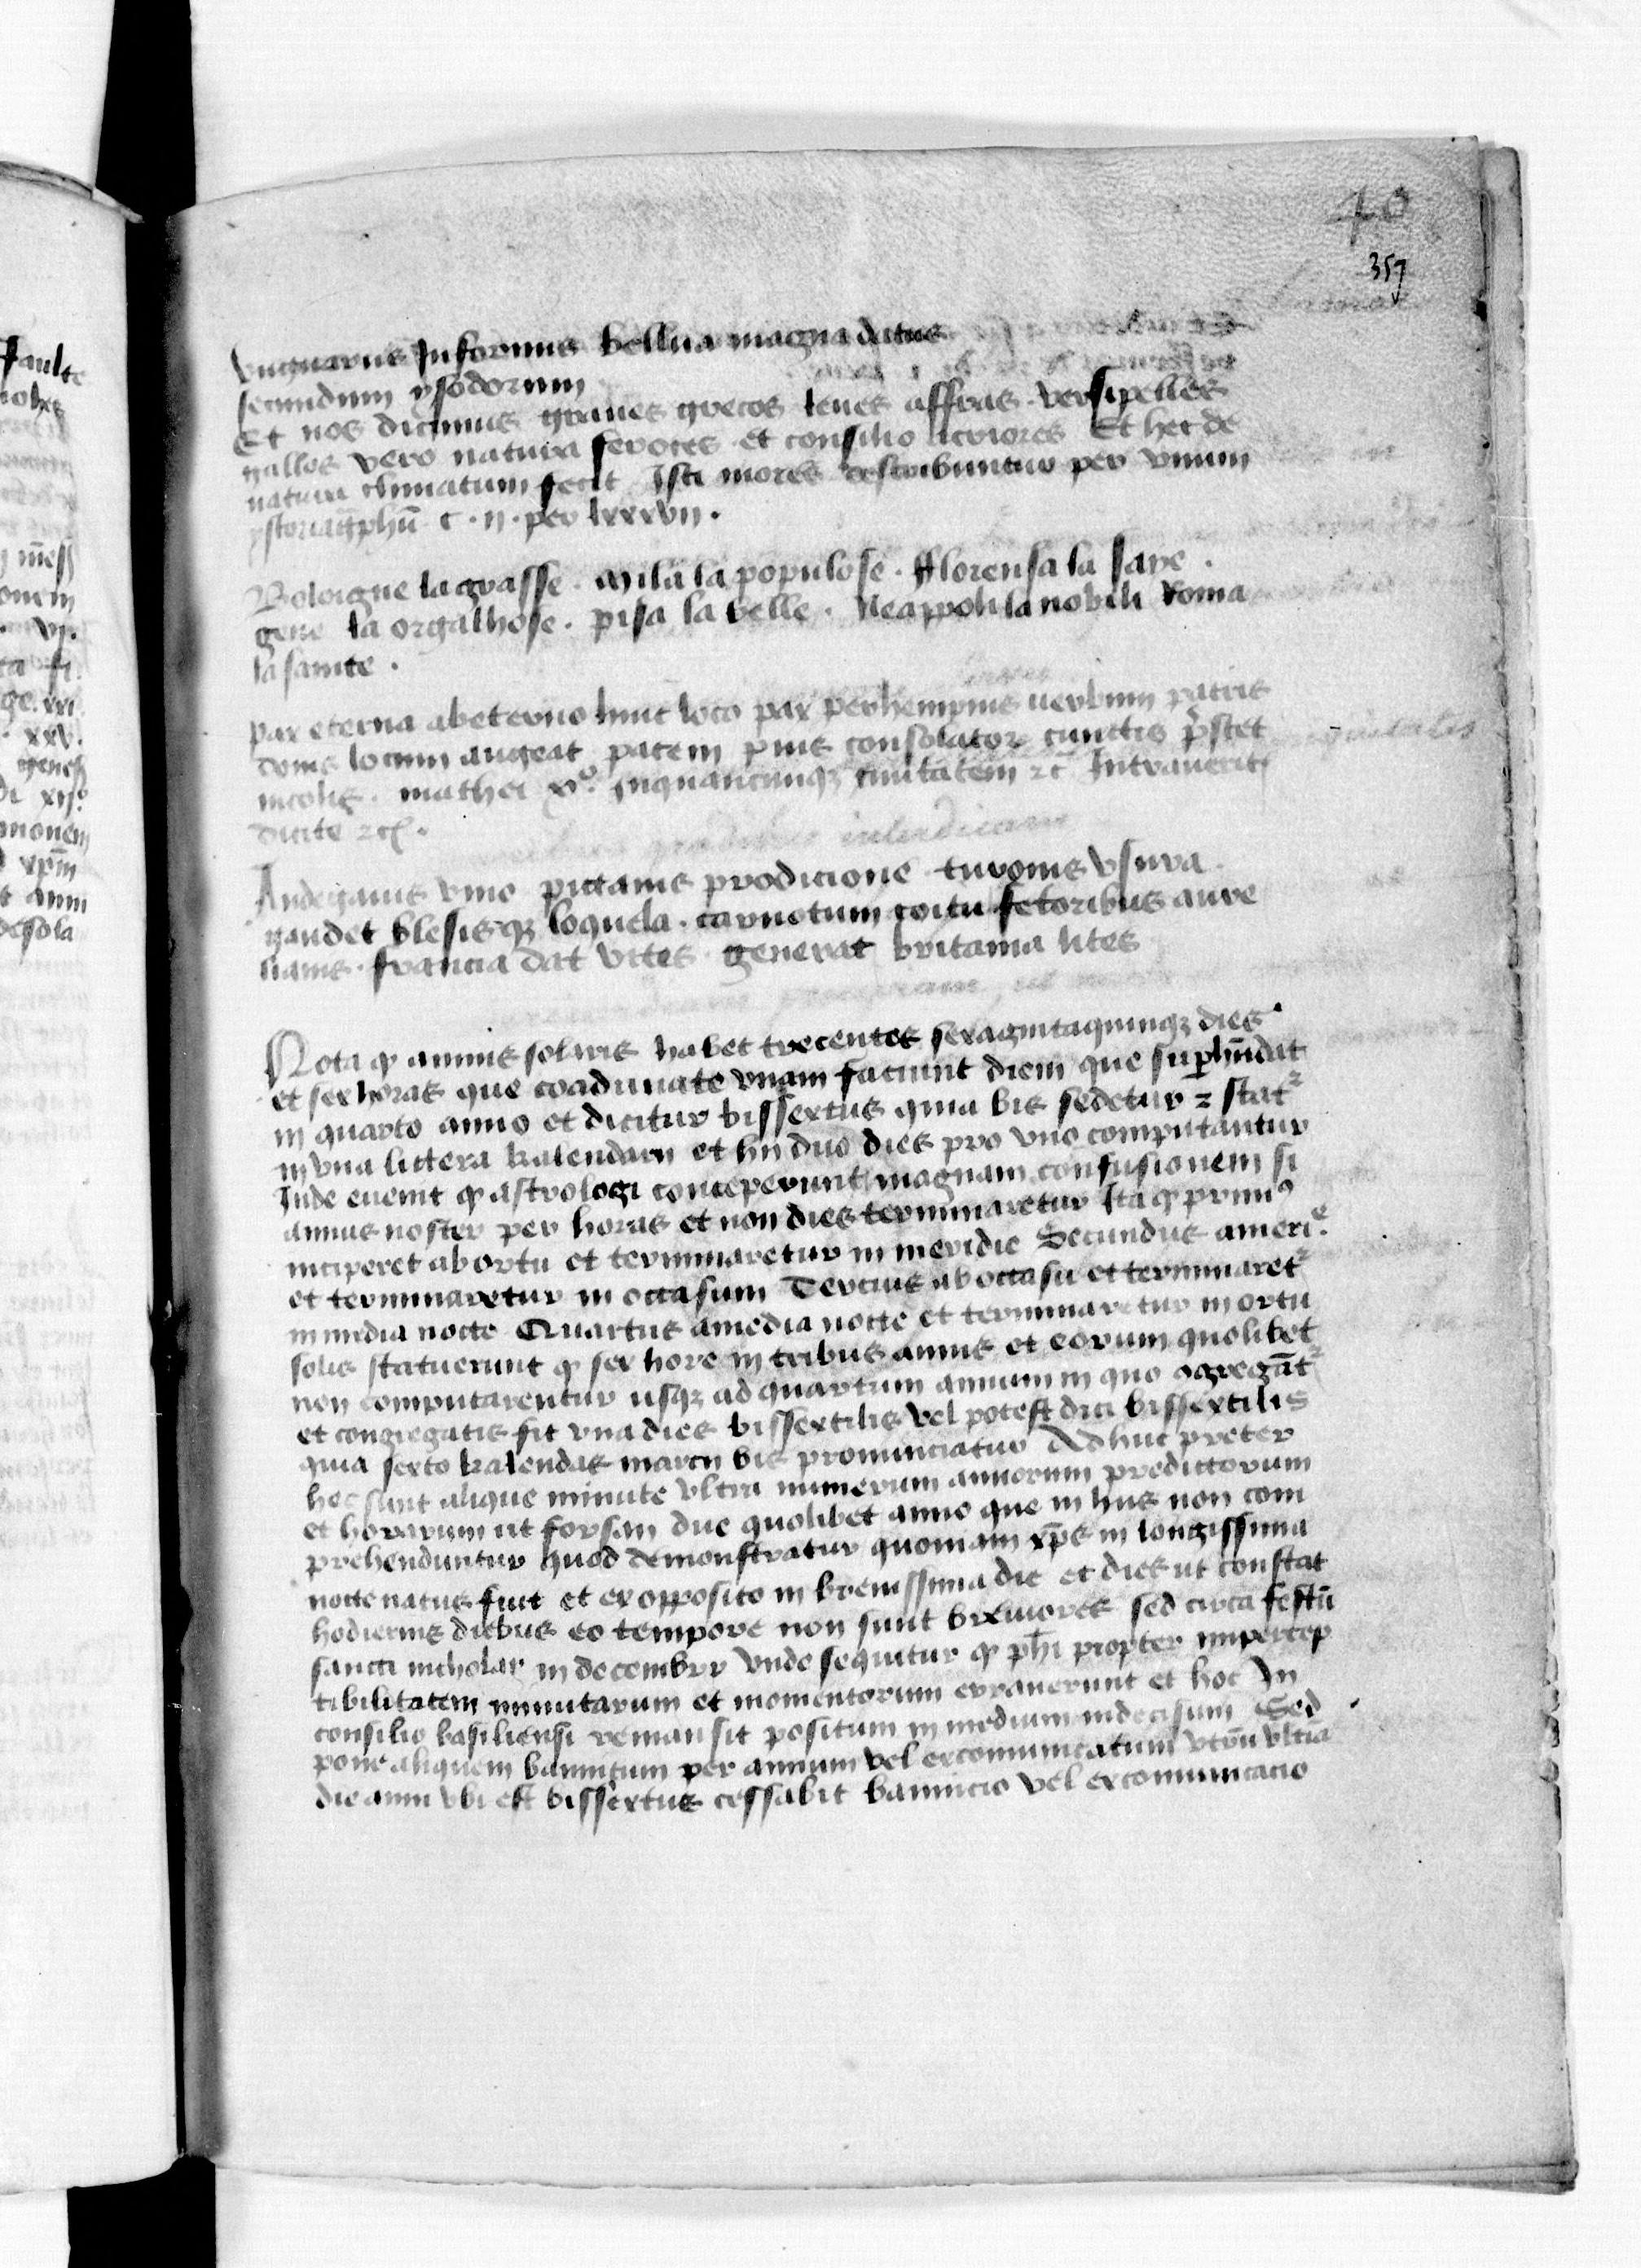 40
357
vngnarus Informus bellua magna datus
secundum ysodorum
Et nos dicimus graues grecos leues affras versipelles
gallos vero natura feroces et consilio acriores Et hec de
natura climatum fecit Isti mores describuntur per vnum
ystoriagphū c · n · per lxxxvii ·
Boloigne la grasse · Milā la populose · fflorensa la saye ·
gene la orgalhose · pisa la belle · Neappoli la nobili Roma
la sainte ·
pax eterna ab eterno huic loco pax perhempnis uerbum patris
domꝰ locum augeat pacem pius consolator cunctis p̄stet
incolis · mathei x° Inquancunqꝫ ciuitatem ⁊c Intraueritis
dicite ⁊cꝭ ·
Andegauis vino pictauis prodicione turonis vsura
gaudet blesisqꝫ loquela · carnotum coitu fetoribus aure
lianis · francia dat vites · generat britania lites
Nota ꝙ annus solaris habet trecentos sexagintaquinqꝫ dies
et sex horas que coadunate vnam faciunt diem que suphūdat
in quarto anno et dicitur bissextus quia bis sedetur ⁊ stat᷑
in vna littera kalendarii et hii duo dies pro vno computantur
Inde euenit ꝙ astrologi conceperunt magnam confusionem si
annus noster per horas et non dies terminaretur Ita ꝙ primꝰ
inciperet ab ortu et terminaretur in meridie Secundus a meri.ᵉ
et terminaretur in occasum Tercius ab occasu et terminaret᷑
in media nocte Quartus a media nocte et terminaretur in ortu
solis statuerunt ꝙ sex hore in tribus annis et eorum quolibet
non computarentur usqꝫ ad quartum annum in quo ꝯgregāt᷑
et congregatis fit vna dies bissextilis vel potest dici bissextilis
quia sexto kalendas marcii bis pronunciatur Ad huc preter
hec sunt alique minute vltra numerum annorum predictorum
et horarum ut forsan due quolibet anno que in hiis non com
prehenduntur quod demonstratur quoniam xp̄s in longissima
nocte natus fuit et ex opposito in breuissima die et dies ut constat
hodiernis diebus eo tempore non sunt breuiores sed circa festū
sancti nicholay in decembrr vnde sequitur ꝙ ph̄i propter impercep
tibilitatem minutarum et momentorum errauerunt et hoc In
consilio basiliensi remansit positum in medium indecisum Sed
pone aliquem bannitum per annum vel excomunicatum vtrū vltia
die anni vbi est bissextus cessabit bannicio vel excomunicacio